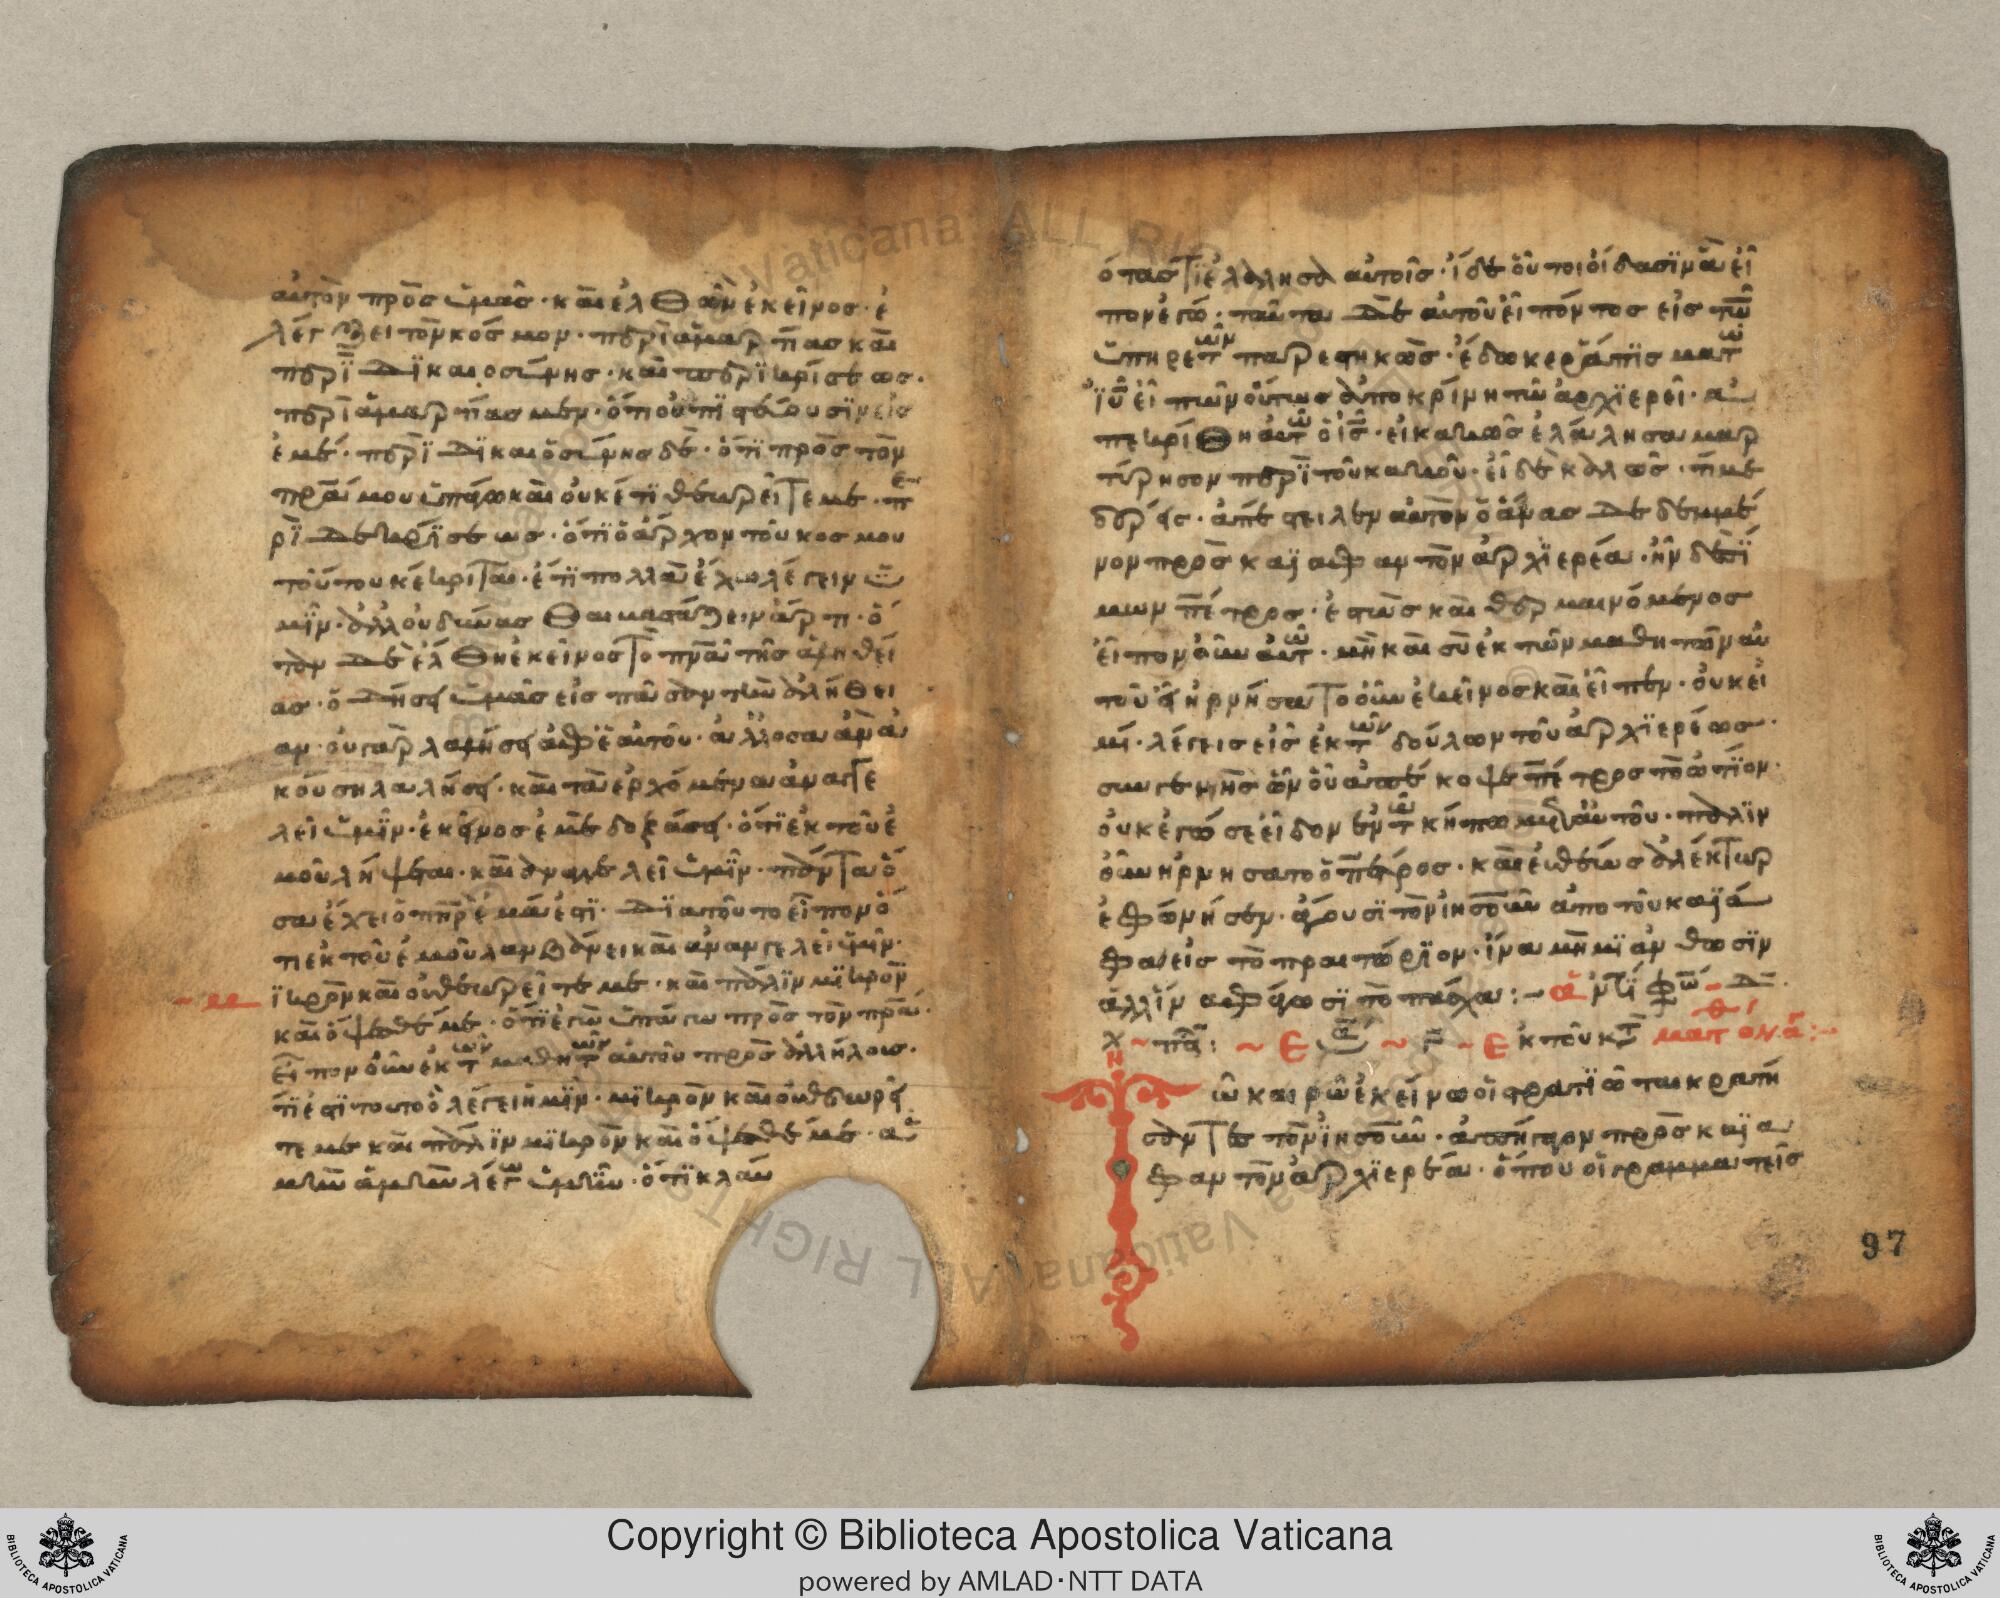 αὐτὸν πρὸς ὑμᾶς· καὶ ἐλθὼν ἐκεῖνος· ἐ
λέγξει τὸν κόσμον· περὶ ἁμαρτίας καὶ
περὶ δϊκαιοσύνης· καὶ περὶ κρίσεως·
περὶ ἁμαρτίας μὲν· ὅτι οὐ πϊστεύουσϊν εἰς
ἐμέ· περὶ δϊκαιοσύνης δὲ· ὅτϊ πρὸς τὸν
πρα μου ὑπάγω καὶ οὐκέτϊ θεωρεῖτε με· πε
ρὶ δὲ κρίσεως· ὅτϊ ὁ ἄρχον τοῦ κοσμου
τούτου κέκριται· ἔτϊ πολλὰ ἔχω λέγειν ὑ
μῖν· ἀλλ οὐ δύνασθαι βαστάζειν ἄρτι· ὅ
τον δὲ ἔλθη ἐκεῖνος το πνα τῆς ἀληθεί
ας· ὁδηγήσει ὑμᾶς εἰς πᾶσαν τὴν ἀλήθει
αν· οὐ γὰρ λαλήσει ἀφ ἑαυτοῦ· ἀλλ οσα ἀν ἀ
κούση λαλήσει· καὶ τὰ ἐρχόμενα ἀναγγε
λεῖ ὑμῖν· ἐκεῖνος ἐμὲ δοξάσει· ὅτϊ ἐκ τοῦ ἐ
μοῦ λήψεται· καὶ ἀναγγελεῖ ὑμῖν· πάντα ὅ
σα ἔχει ὁ πηρ ἐμά ἐστϊ· δϊατοῦτο εἶπον ὅ
τι ἐκ τοῦ ἐμοῦ λαμβάνει καὶ ἀναγγελεῖ ὑμῖν·
μϊκρὸν καὶ οὐ θεωρεῖτε με· καὶ πάλϊν μϊκρὸν
καὶ ὄψεσθέ με· ὅτϊ ἐγὼ ὑπάγω πρὸς τὸν πρα·
Εἶπον οὖν ἐκ των μαθητων αὐτοῦ πρὸς ἀλλήλους·
τϊ ἐστϊ τοῦτο ὁ λέγει ἡμῖν· μϊκρὸν καὶ οὐ θεωρεῖ
τε με καὶ πάλϊν μϊκρὸν καὶ ὄψεσθέ με· ἀ
μὴν ἀμὴν λέγω ὑμῖν· ὅτϊ κλαύ
ὅτας τϊ ἐλάλησα αὐτοῖς· ἴδε οὗτοι οἴδασϊν ἃ εἶ
πον ἐγώ· ταῦτα δὲ αὐτοῦ εἰπόντος εἷς τῶν
ὑπηρετῶν παρεστηκὼς· ἔδωκε ράπϊσματω
ϊυ εἰπὼν οὕτως ἀποκρίνη τῶ ἀρχϊερεῖ· ἀ
πεκρίθη αὐτω ὁ ις· εἰ κακῶς ἐλάλησα μαρ
τύρησον περὶ τοῦ κακοῦ· εἰ δὲ καλῶς· τί με
δέρεις· ἀπέστειλεν αὐτὸν ὁ ἄννας δεδεμέ
νον πρὸς καϊάφαν τὸν ἀρχϊερέα· ἦν δὲ σϊ
μων πέτρος· ἑστὼς καὶ θερμαινόμενος
εἶπον οὖν αὐτω· μὴ καὶ σὺ ἐκ τῶν μαθητῶν αὐ
τοῦ εἶ ἠρνήσατο οὖν ἐκεῖνος καὶ εἶπεν· οὐκ εἰ
μί· λέγει εἷς ἐκ τῶν δούλων τοῦ ἀρχϊερέως·
συγγενὴς ὢν οὗ ἀπέκοψε πέτρος τὸ ὠτϊον·
οὐκ ἐγώ σε εἶδον ἐν τῶ κήπω μετ αὐτοῦ· πάλϊν
οὖν ἠρνήσατο ὁ πέτρος· καὶ εὐθέως ἀλέκτωρ
ἐφώνησεν· ἄγουσϊ τὸν ἰησοῦν ἀπο τοῦ καϊά
φα εἰς τὸ πραιτώρϊον· ἵνα μὴ μϊανθωσϊν
ἀλλ ἵνα φάγωσϊ τὸ πάσχα:
ἐκ τοῦ κτ ματθ
τῶ καιρῶ ἐκείνω οἱ στρατϊῶται κρατή
σαντες τὸν ϊησοῦν· ἀπήγαγον πρὸς καϊα
φαν τὸν ἀρχϊερέα· ὅπου οἱ γραμματεῖς
97
Copyright © Biblioteca Apostolica Vaticana
powered by AMLAD·NTT DATA